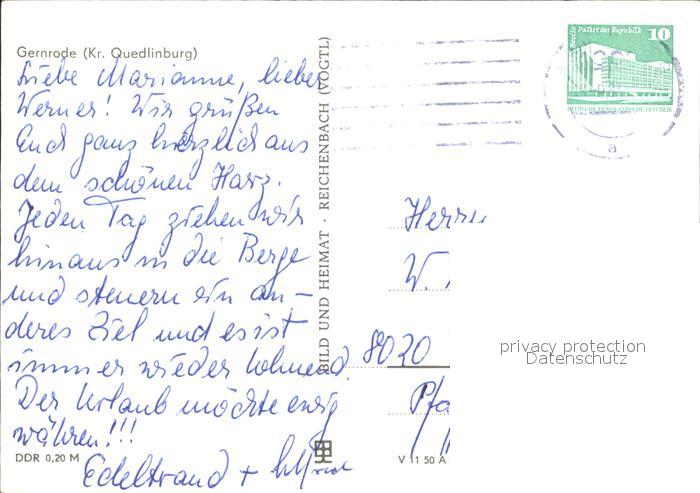 Gernrode (Kr. Quedlinburg)
Liebe Marianne, lieber
Werner! Wir grüßen
Euch ganz herzlich aus
dem schönen Harz.
Jeden Tag ziehen wir
hinaus in die Berge
und steuern ein an-
deres Ziel und es ist
immer wieder lohnend.
Der Urlaub möchte ewig
währen!!!
Edeltraud +
DDR 0,20 M
BILD UND HEIMAT · REICHENBACH (VOGTL)
V 11 50 A
Berlin Palast der Republik 10
DEUTSCHE DEMOKRATISCHE REPUBLIK
a
Herrn
W.
8020
Pfa
privacy protection
Datenschutz